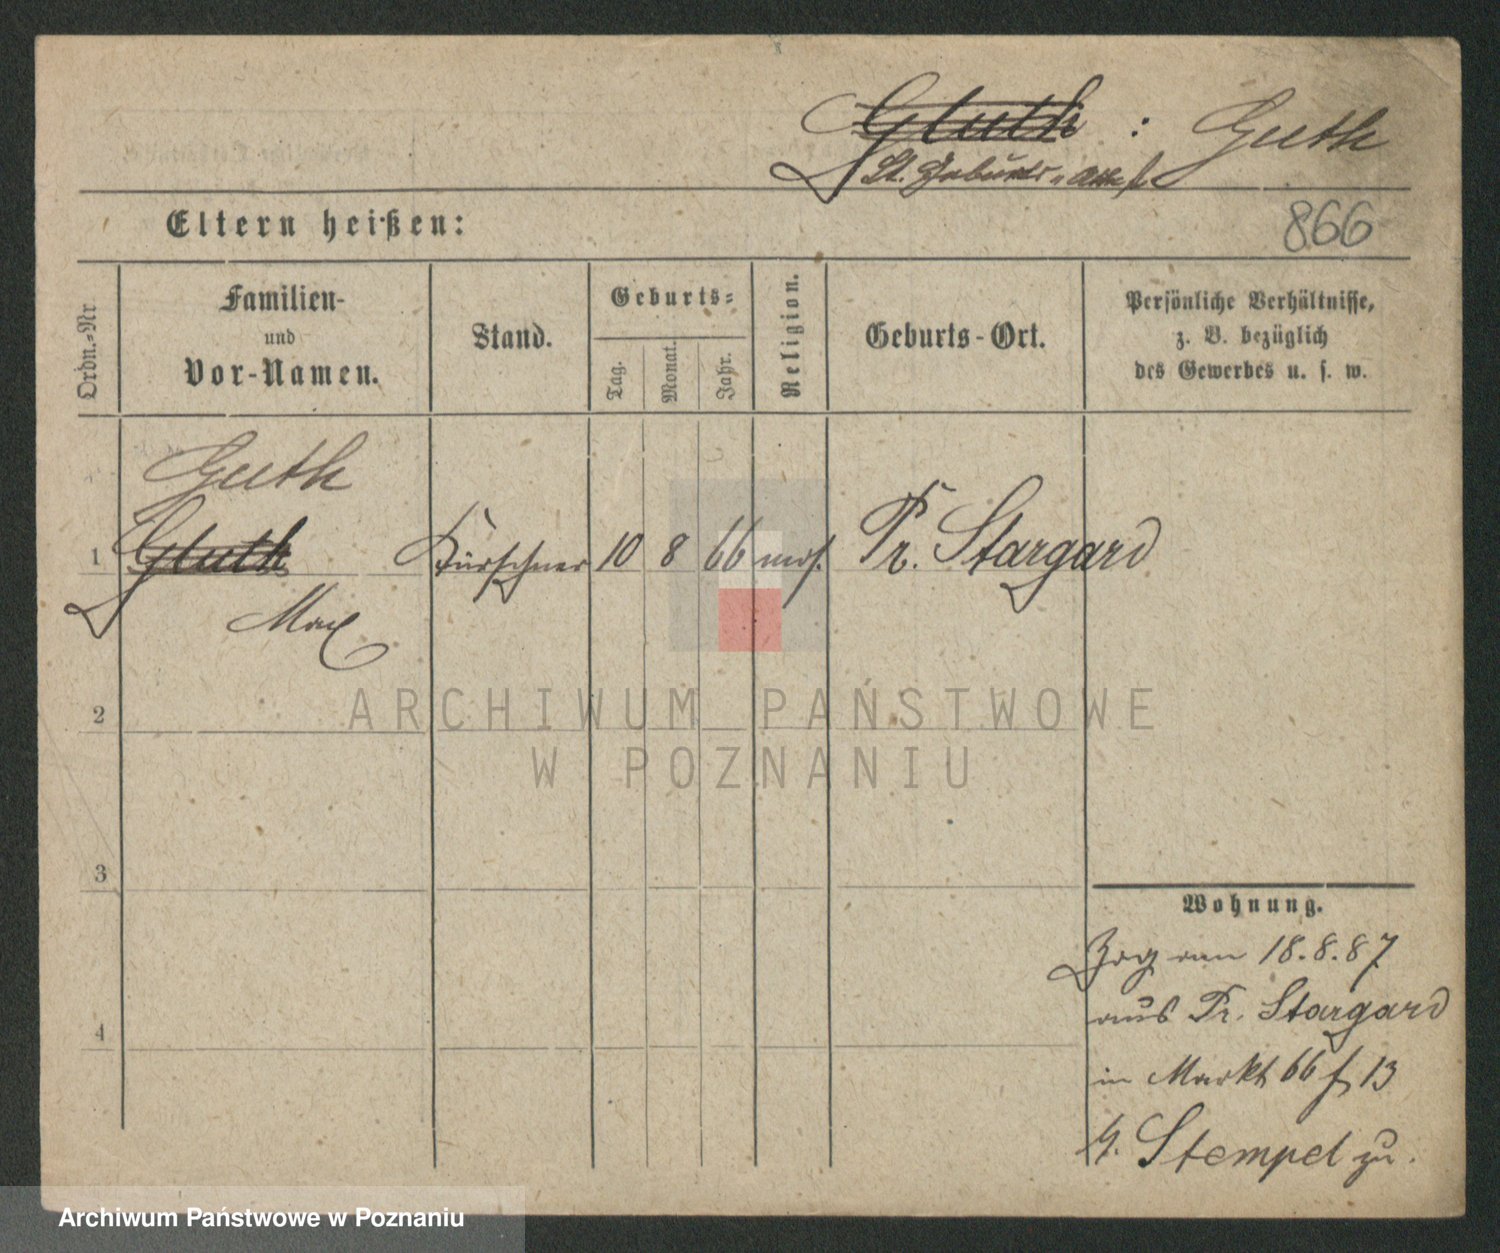 Gluth : Guth
lt. Geburts-Atte
866
Eltern heißen:
Ordn.-Nr
Familien-
und
Vor-Namen.
Stand.
Geburts-
Tag.
Monat.
Jahr.
Religion.
Geburts-Ort.
Persönliche Verhältnisse,
z. B. bezüglich
des Gewerbes u. s. w.
Guth
1 Gluth Kürschner 10 8 66 mos. Pr. Stargard
Max
2
3
4
Wohnung.
Zog am 18.8.87
aus Pr. Stargard
in Markt 66 f 13
b. Stempel zu.
ARCHIWUM PAŃSTWOWE
W POZNANIU
Archiwum Państwowe w Poznaniu